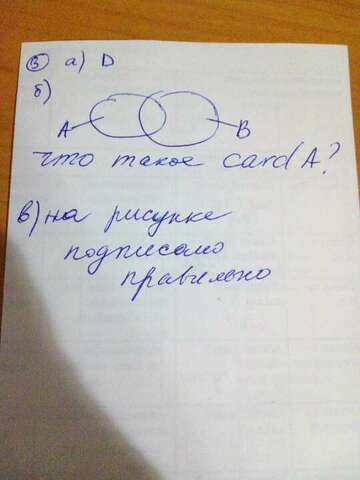 ③ а) D
б)
A B
что такое card A?
в) на рисунке
подписано
правильно